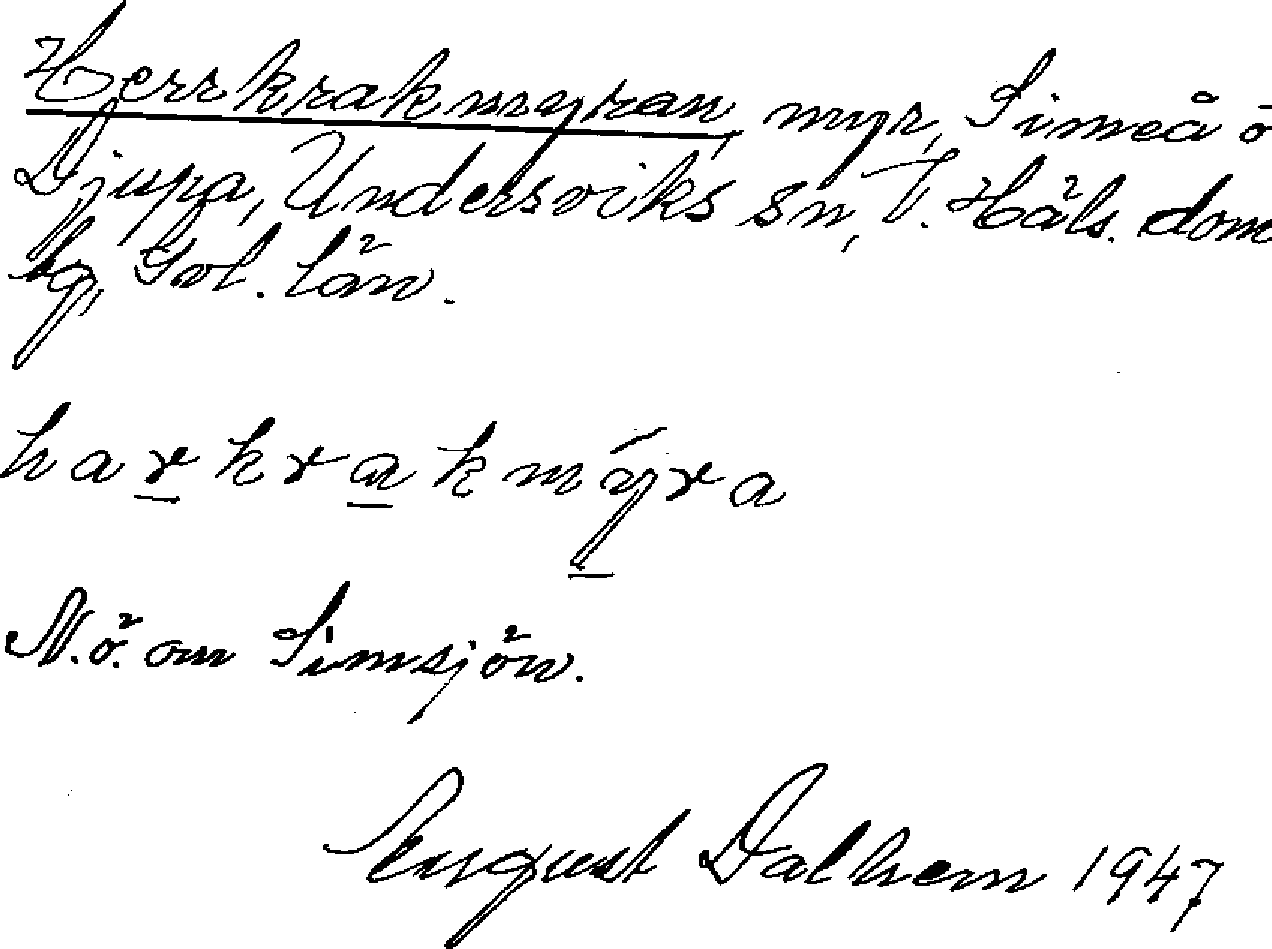 Herrkrakmyran, myr, Simeå o
Djupa, Undersviks sn, V. Häls. dom
bg, Gvl. län.
harkrakmýra
N.ö. om Simsjön.
August Dalhem 1947